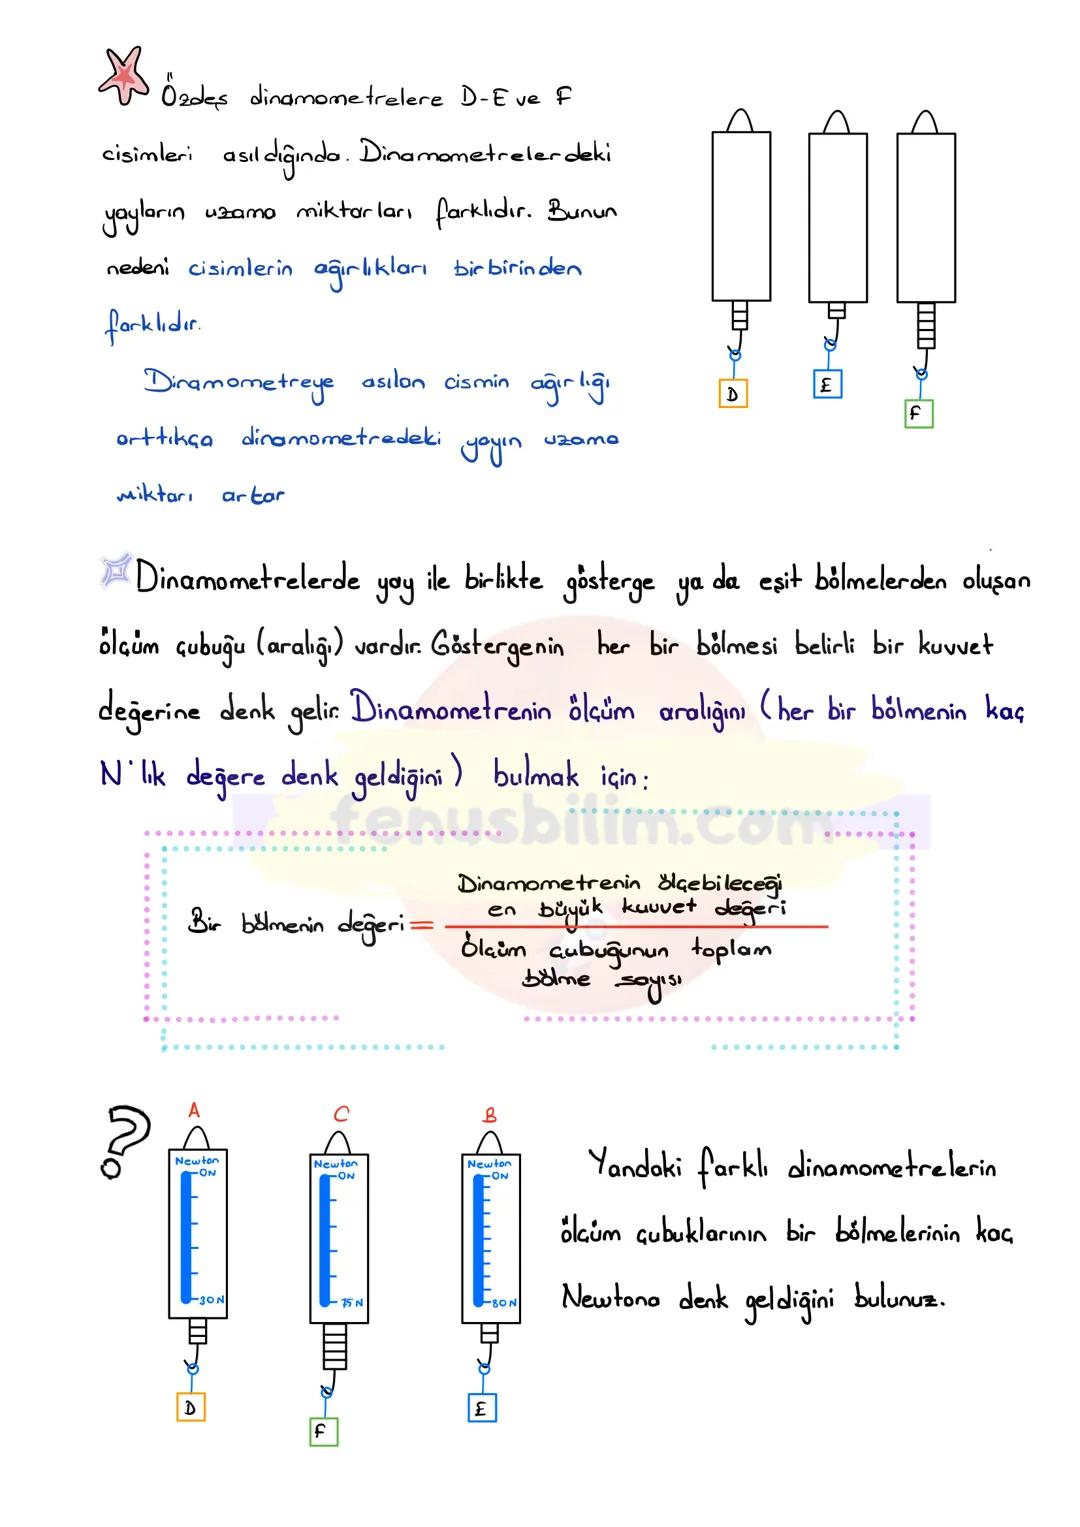 Özdeş dinamometrelere D-E ve F
cisimleri asıldığında. Dinamometrelerdeki
yayların uzama miktarları farklıdır. Bunun
nedeni cisimlerin ağırlıkları birbirinden
farklıdır.
Dinamometreye asılan cismin ağırlığı
arttıkça dinamometredeki yayın uzama
miktarı artar
D
E
F
Dinamometrelerde yay ile birlikte gösterge ya da eşit bölmelerden oluşan
ölçüm çubuğu (aralığı) vardır. Göstergenin her bir bölmesi belirli bir kuvvet
değerine denk gelir. Dinamometrenin ölçüm aralığını (her bir bölmenin kaç
N'lık değere denk geldiğini) bulmak için:
fenusbilim.com
Dinamometrenin ölçebileceği
en büyük kuvvet değeri
Bir bölmenin değeri =
Ölçüm çubuğunun toplam
bölme sayısı
?
A
Newton
0N
30N
D
C
Newton
0N
75N
F
B
Newton
0N
80N
E
Yandaki farklı dinamometrelerin
ölçüm çubuklarının bir bölmelerinin kaç
Newtona denk geldiğini bulunuz.